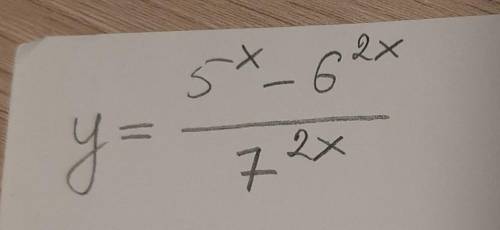 y = \frac{5^x - 6^{2x}}{7^{2x}}